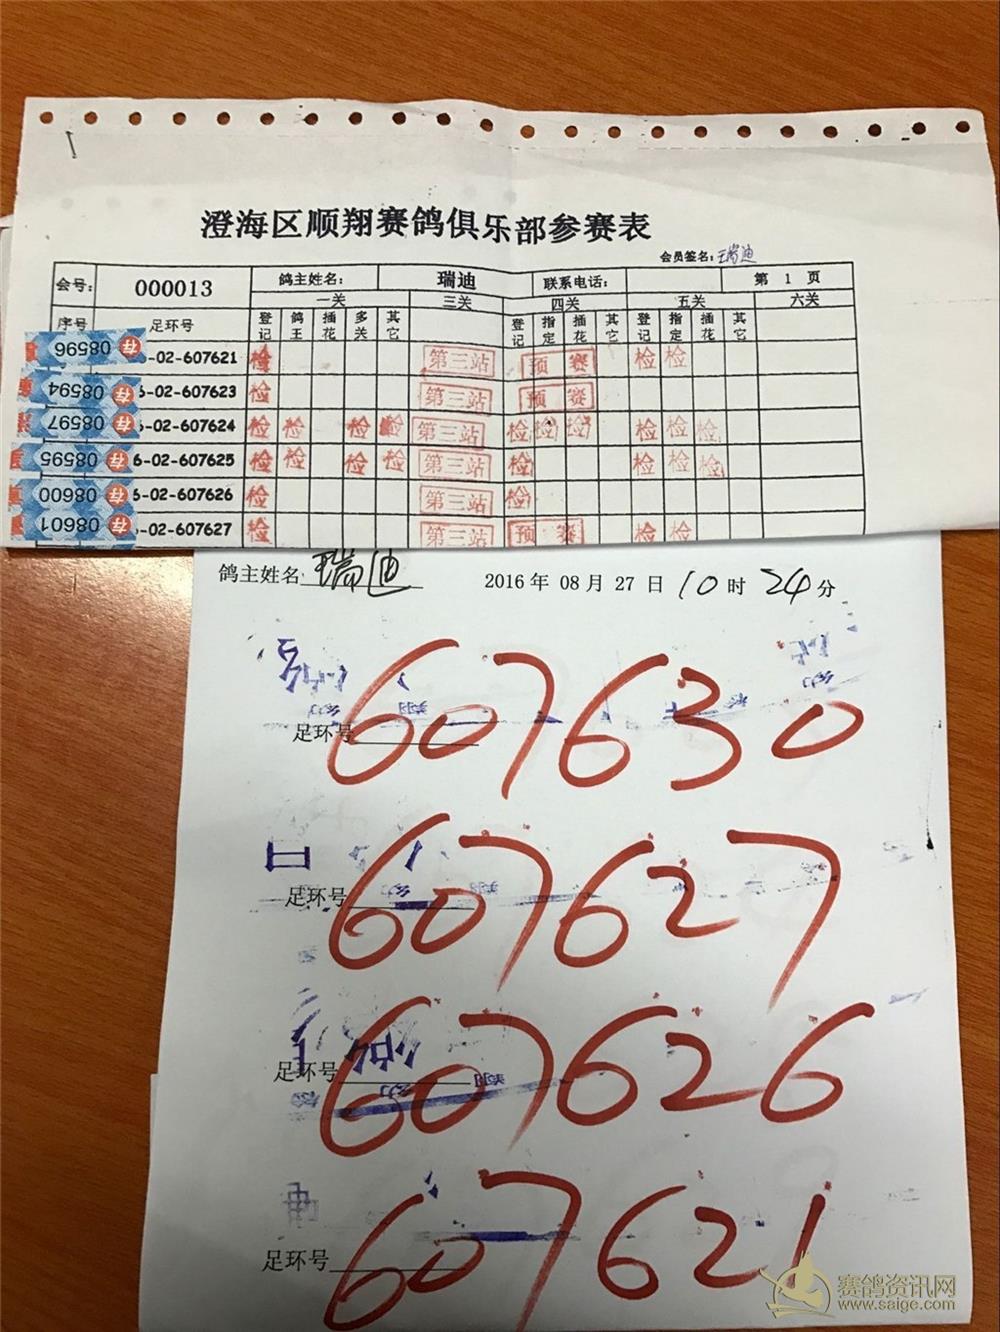 澄海区顺翔赛鸽俱乐部参赛表
会员签名: 瑞迪
会号: 000013 鸽主姓名: 瑞迪 联系电话: 第 1 页
一关 三关 四关 五关 六关
序号 足环号 登记 鸽王 插花 多关 其它 登记 指定 插花 其它 登记 指定 插花 其它
08596 存 -02-607621 检 第三站 预赛 检 检
08594 存 6-02-607623 检 第三站 预赛
08597 存 6-02-607624 检 检 检 检 第三站 检 检 检 检 检 检
08595 存 6-02-607625 检 检 检 检 第三站 检 检 检 检
08600 存 6-02-607626 检 第三站 检
08601 存 6-02-607627 检 第三站 预赛 检 检
鸽主姓名 瑞迪 2016 年 08 月 27 日 10 时 24 分
足环号 607630
足环号 607627
足环号 607626
足环号 607621
赛鸽资讯网
www.saige.com